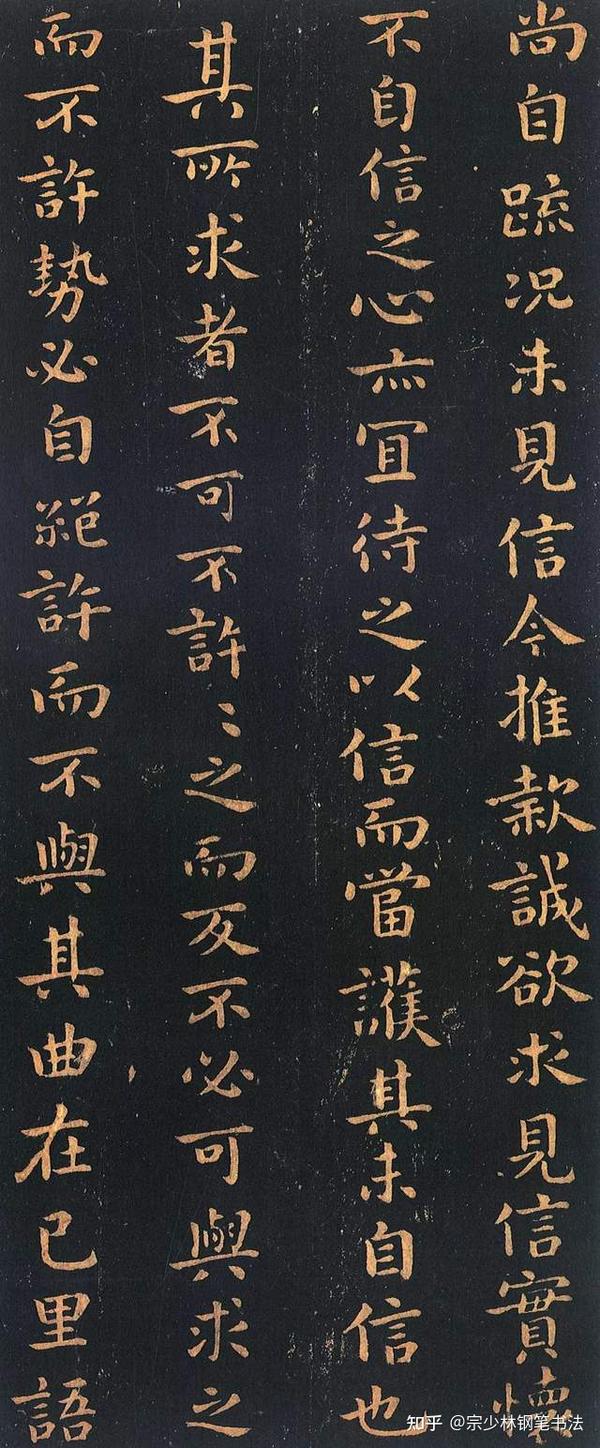 尚自疏况未見信今推款誠欲求見信實懷
不自信之心亦宜待之以信而當護其未自信也
其所求者不可不許〻之而反不必可與求之
而不許勢必自絕許而不與其曲在己里語
知乎 @宗少林钢笔书法